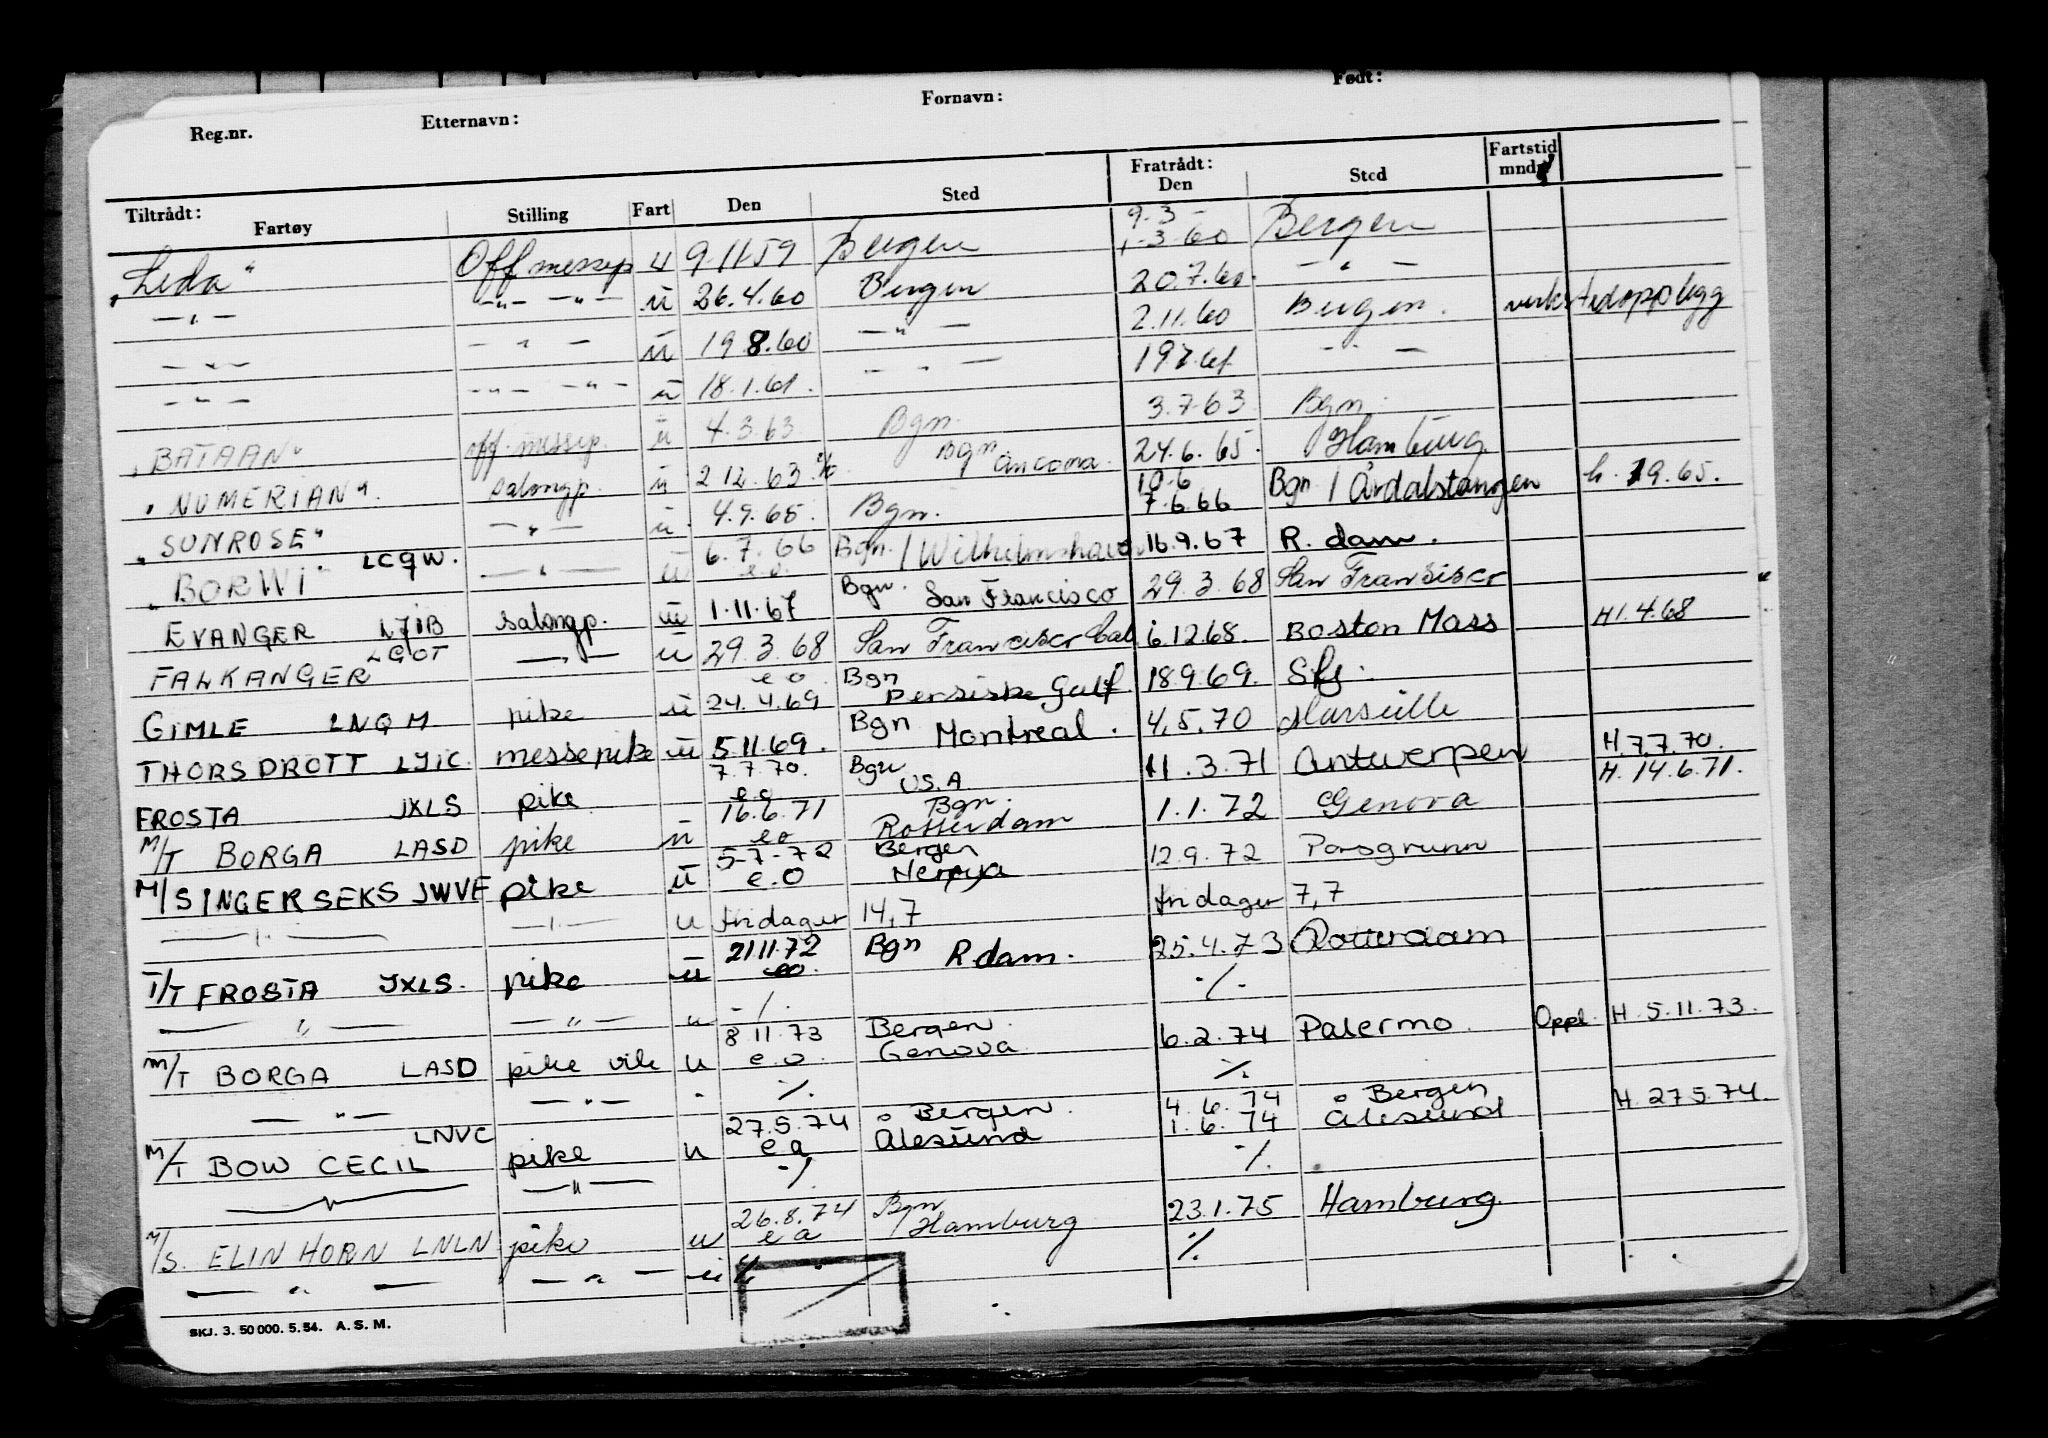 Reg.nr. Etternavn: Fornavn: Født:
Tiltrådt: Fratrådt: Fartstid
Fartøy Stilling Fart Den Sted Den Sted mndr.
9-3-
"Leda" Off messep u 9-11-59 Bergen 1-3-60 Bergen
-"- -"- -"- u 26.4.60 Bergen 20.7.60. - " -
-"- - " - u 19 8.60 - " - 2.11.60 Bergen. verkstedopplegg
-"- -"- -"- u 18.1.61. - " - 19 7.61 - " -
"BATAAN" off. messep. u 4.3.63. Bgn. 3.7.63 Bgn.
"NUMERIAN". salongp. u 2 12.63 Bgn Ancona. 24.6.65. Hamburg
"SUNROSE" - " - u. 4.9.65. Bgn. 10.6 7.6.66 Bgn / Årdalstangen h. 1 9.65.
"BORWI" LCQW. - " - u 6.7.66 e.o. Bgn. / Wilhelmshaven 16.9.67 R.dam.
EVANGER LJIB salongp. u 1.11.67 Bgn. San Francisco 29.3.68 San Fransisco
FALKANGER LGOT - " - u 29.3.68 San Francisco Cal 6.12 68. Boston Mass H1.4.68
GIMLE LNQM pike u e o 24.4.69 Bgn Persiske Gulf 18.9.69. Sfj.
THORSDROTT LJIC messepike u 5.11.69. Bgn Montreal. 4.5.70 Marseille
FROSTA JXLS pike 7.7.70. e o Bgn U.S.A 11.3.71 Antwerpen H.7.7.70.
H. 14.6.71.
M/T BORGA LASD pike u 16.6.71 e o Bgn. Rotterdam 1.1.72 Genova
M/S INGERSEKS JWVF pike u 5-7-72 e.o Bergen 12.9.72 Porsgrunn
- " - - " - u fridager 14,7 fridager 7,7
T/T FROSTA JXLS. pike u 21.11.72 eo. Bgn R dam. 25.4.73 Rotterdam
- " - - " - u -/. -/.-
M/T BORGA LASD pike vik u 8 11.73 e.o. Bergen. Genova 6.2.74 Palermo. Oppl. H. 5.11.73.
- " - - " - " ./. ./.
M/T BOW CECIL LNVC pike u 27.5.74 e a Bergen. Ålesund 4.6.74 1.6.74 Bergen Ålesund H. 27 5.74.
- " - - " - -/. -/.
M/S. ELIN HORN LNLN pike u 26.8.74 e a Bgn / Hamburg 23.1.75 Hamburg.
- " - - " - u ./. ./.
SKJ. 3. 50 000. 5. 54. A. S. M.